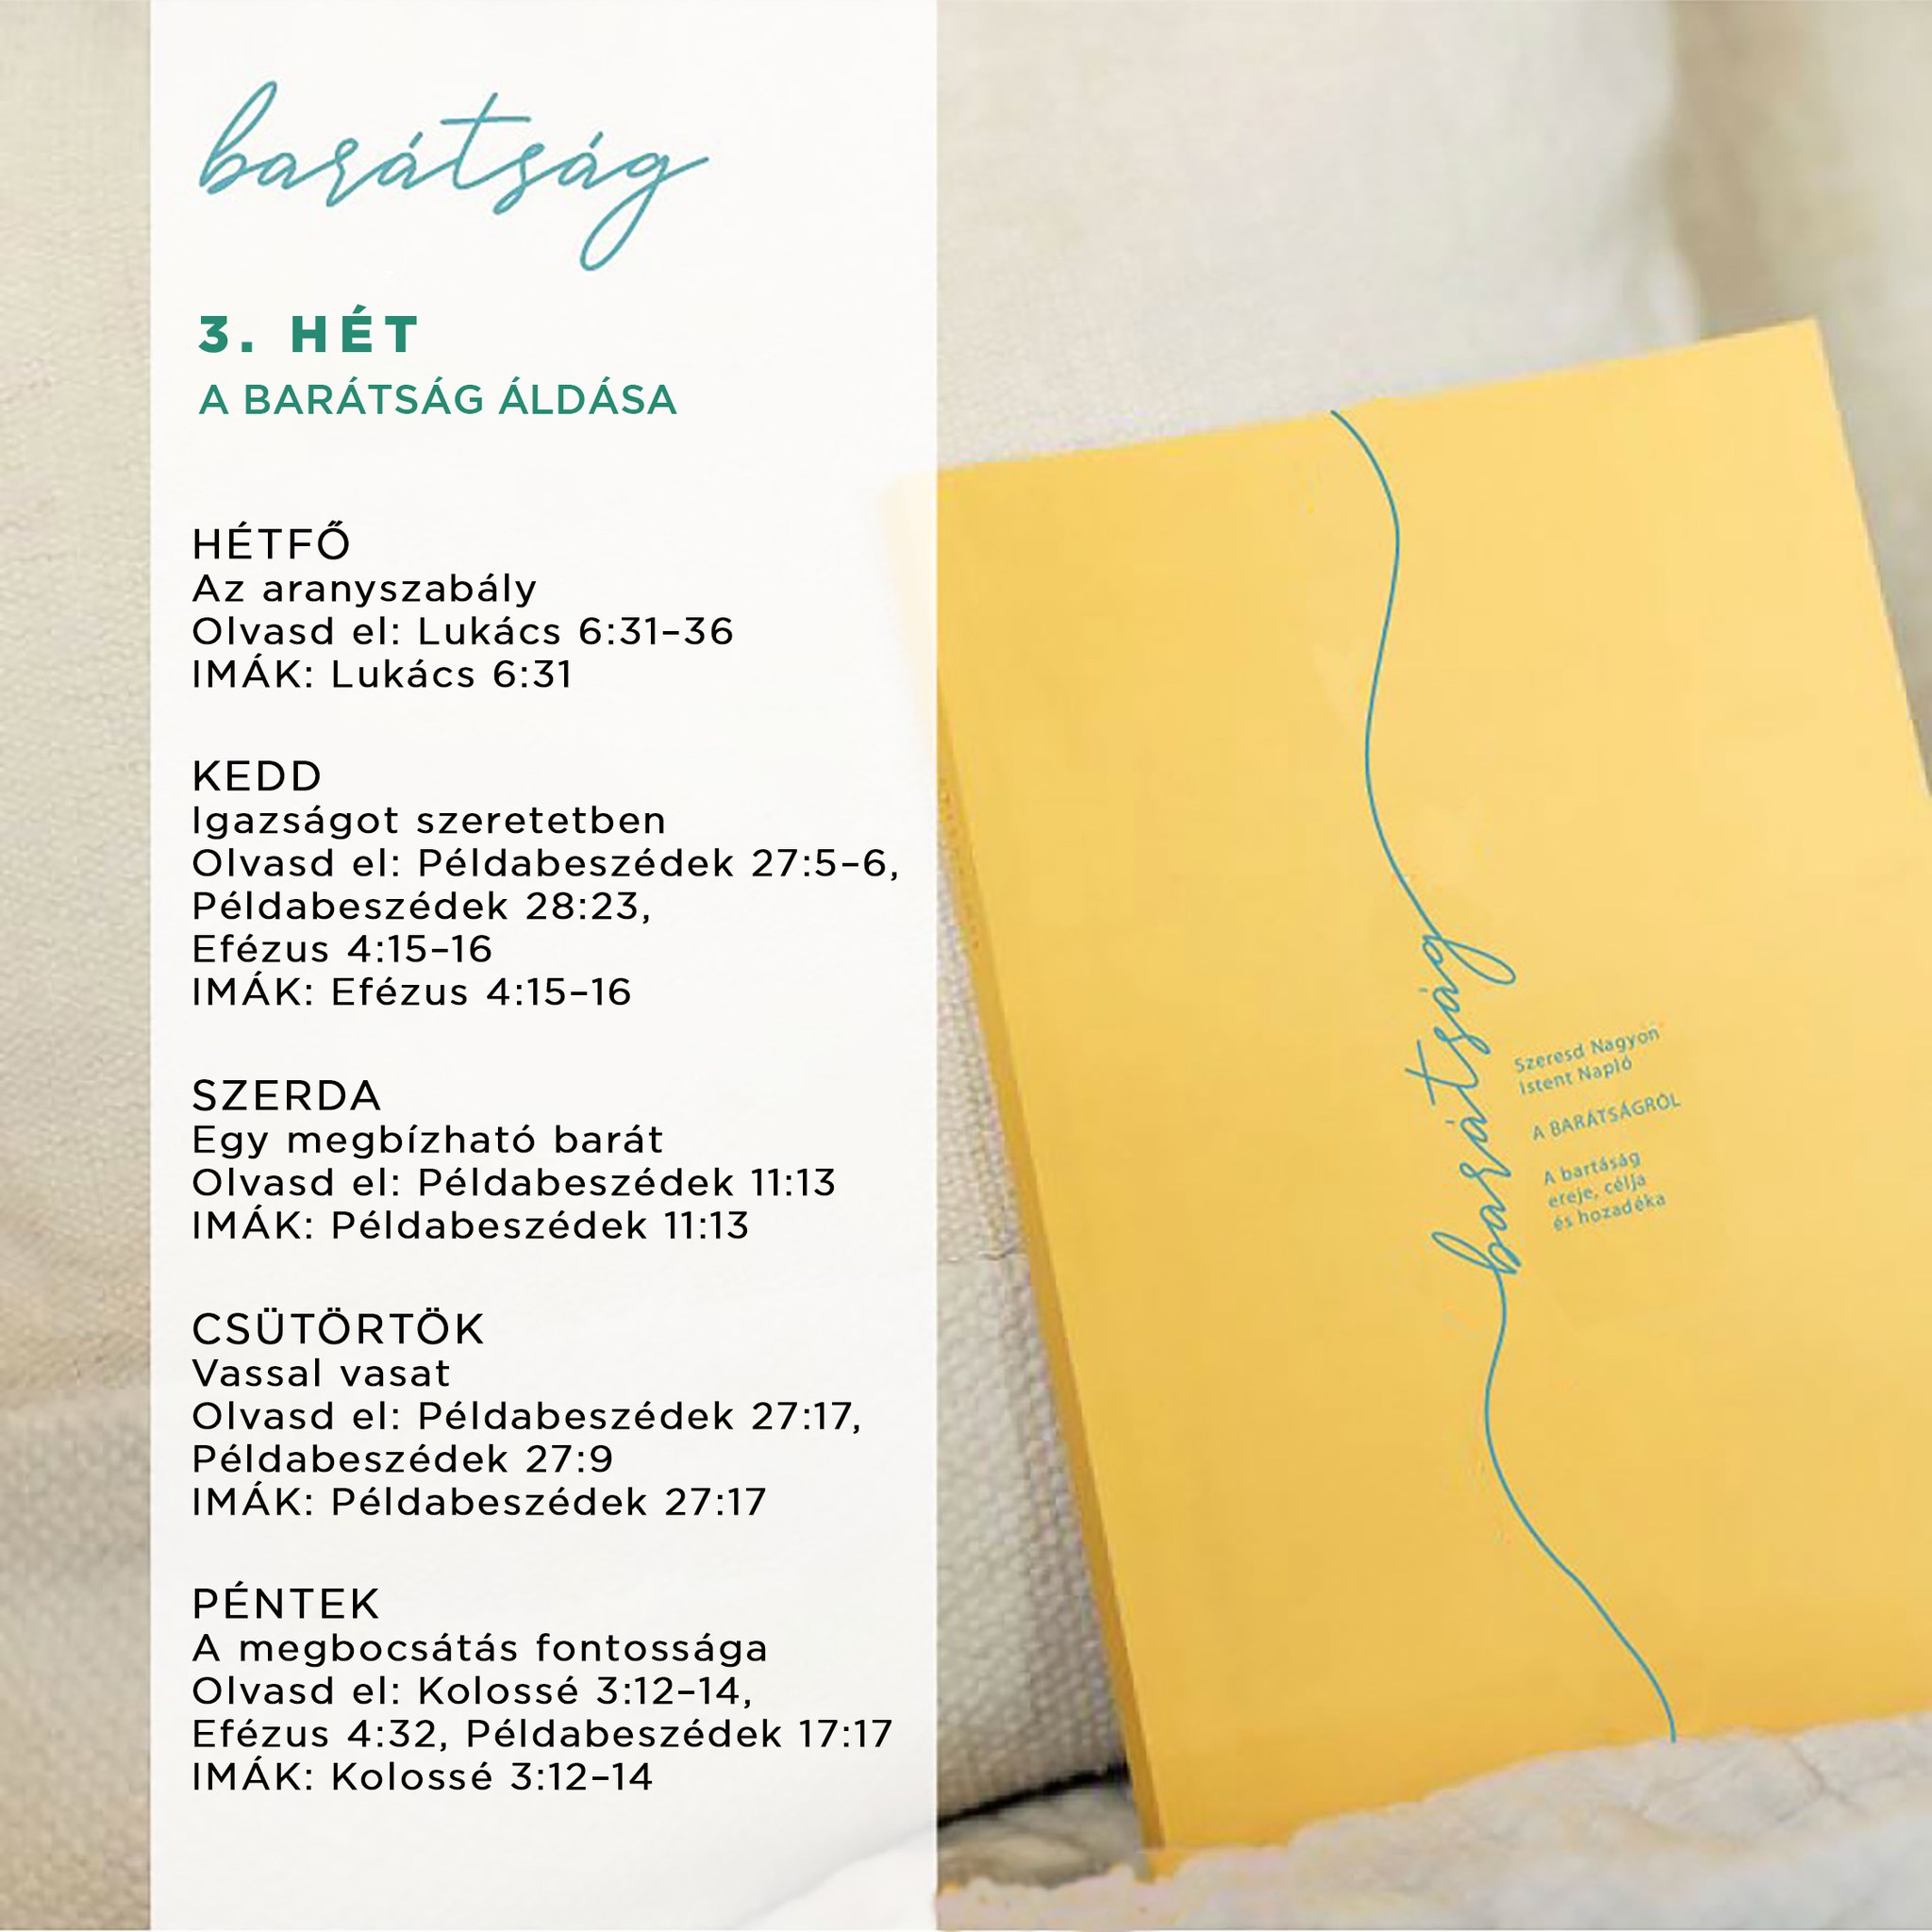 barátság
3. HÉT
A BARÁTSÁG ÁLDÁSA
HÉTFŐ
Az aranyszabály
Olvasd el: Lukács 6:31–36
IMÁK: Lukács 6:31
KEDD
Igazságot szeretetben
Olvasd el: Példabeszédek 27:5–6,
Példabeszédek 28:23,
Efézus 4:15–16
IMÁK: Efézus 4:15–16
SZERDA
Egy megbízható barát
Olvasd el: Példabeszédek 11:13
IMÁK: Példabeszédek 11:13
CSÜTÖRTÖK
Vassal vasat
Olvasd el: Példabeszédek 27:17,
Példabeszédek 27:9
IMÁK: Példabeszédek 27:17
PÉNTEK
A megbocsátás fontossága
Olvasd el: Kolossé 3:12–14,
Efézus 4:32, Példabeszédek 17:17
IMÁK: Kolossé 3:12–14
barátság
Szeresd Nagyon
Istent Napló
A BARÁTSÁGRÓL
A bartáság
ereje, célja
és hozadéka